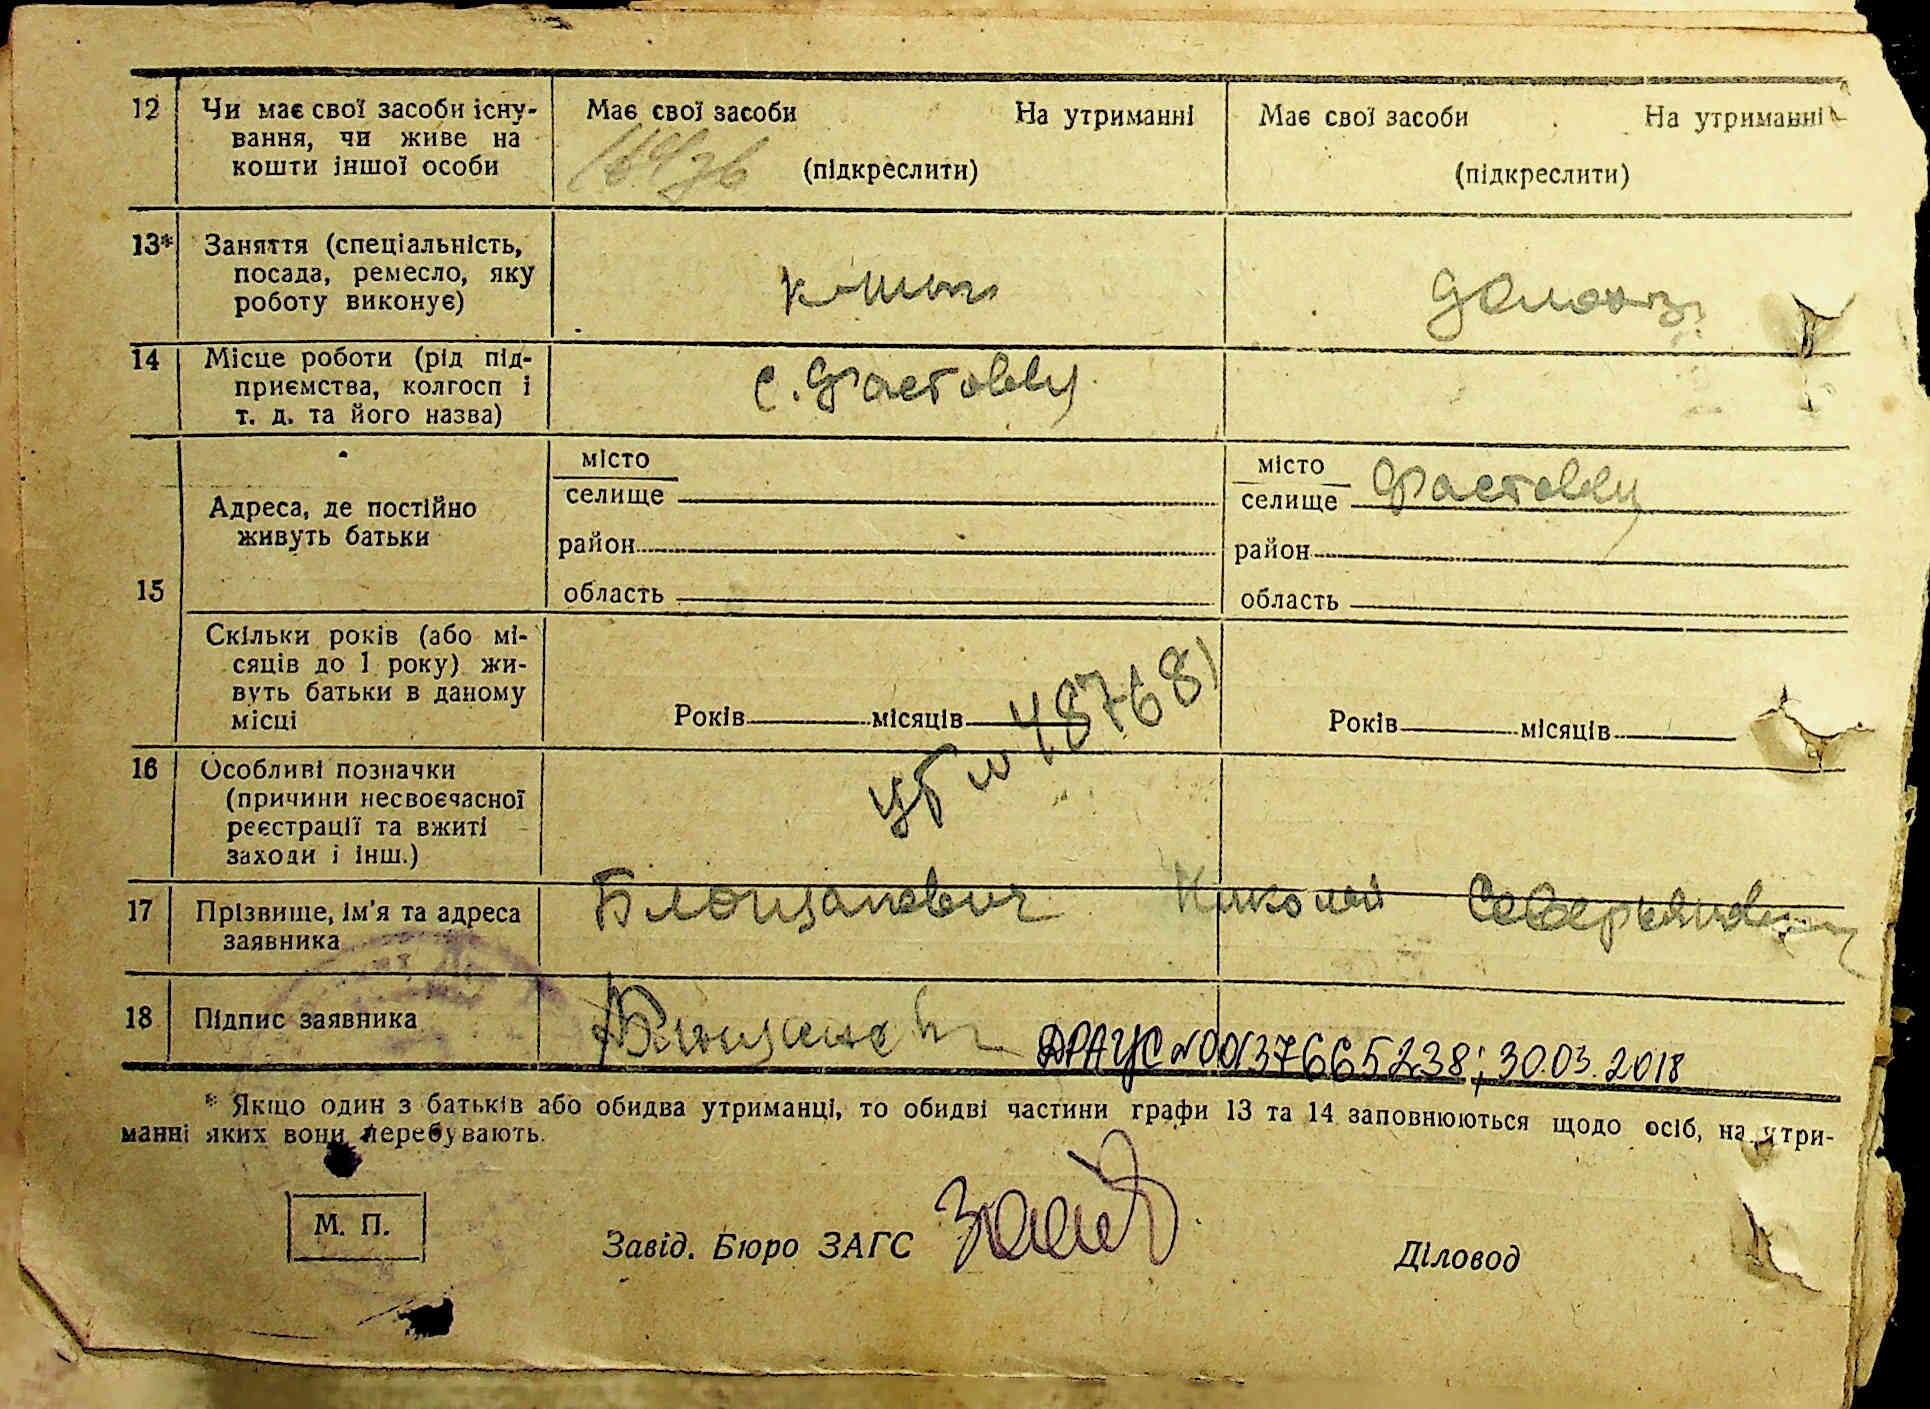 12 Чи має свої засоби існу-
вання, чи живе на
кошти іншої особи
Має свої засоби На утриманні
(підкреслити)
Має свої засоби На утриманні
(підкреслити)
13* Заняття (спеціальність,
посада, ремесло, яку
роботу виконує)
14 Місце роботи (рід під-
приємства, колгосп і
т. д. та його назва)
с. Фастовец
15
Адреса, де постійно
живуть батьки
місто
селище
район
область
місто
селище Фастовец
район
область
Скільки років (або мі-
сяців до 1 року) жи-
вуть батьки в даному
місці
Років місяців
Років місяців
УБ № 487681
16 Особливі позначки
(причини несвоєчасної
реєстрації та вжиті
заходи і інш.)
17 Прізвище, ім'я та адреса
заявника
Николай
18 Підпис заявника
ДРАЦС №00137665238; 30.03.2018
* Якщо один з батьків або обидва утриманці, то обидві частини графи 13 та 14 заповнюються щодо осіб, на утри-
манні яких вони перебувають.
М. П.
Завід. Бюро ЗАГС
Діловод